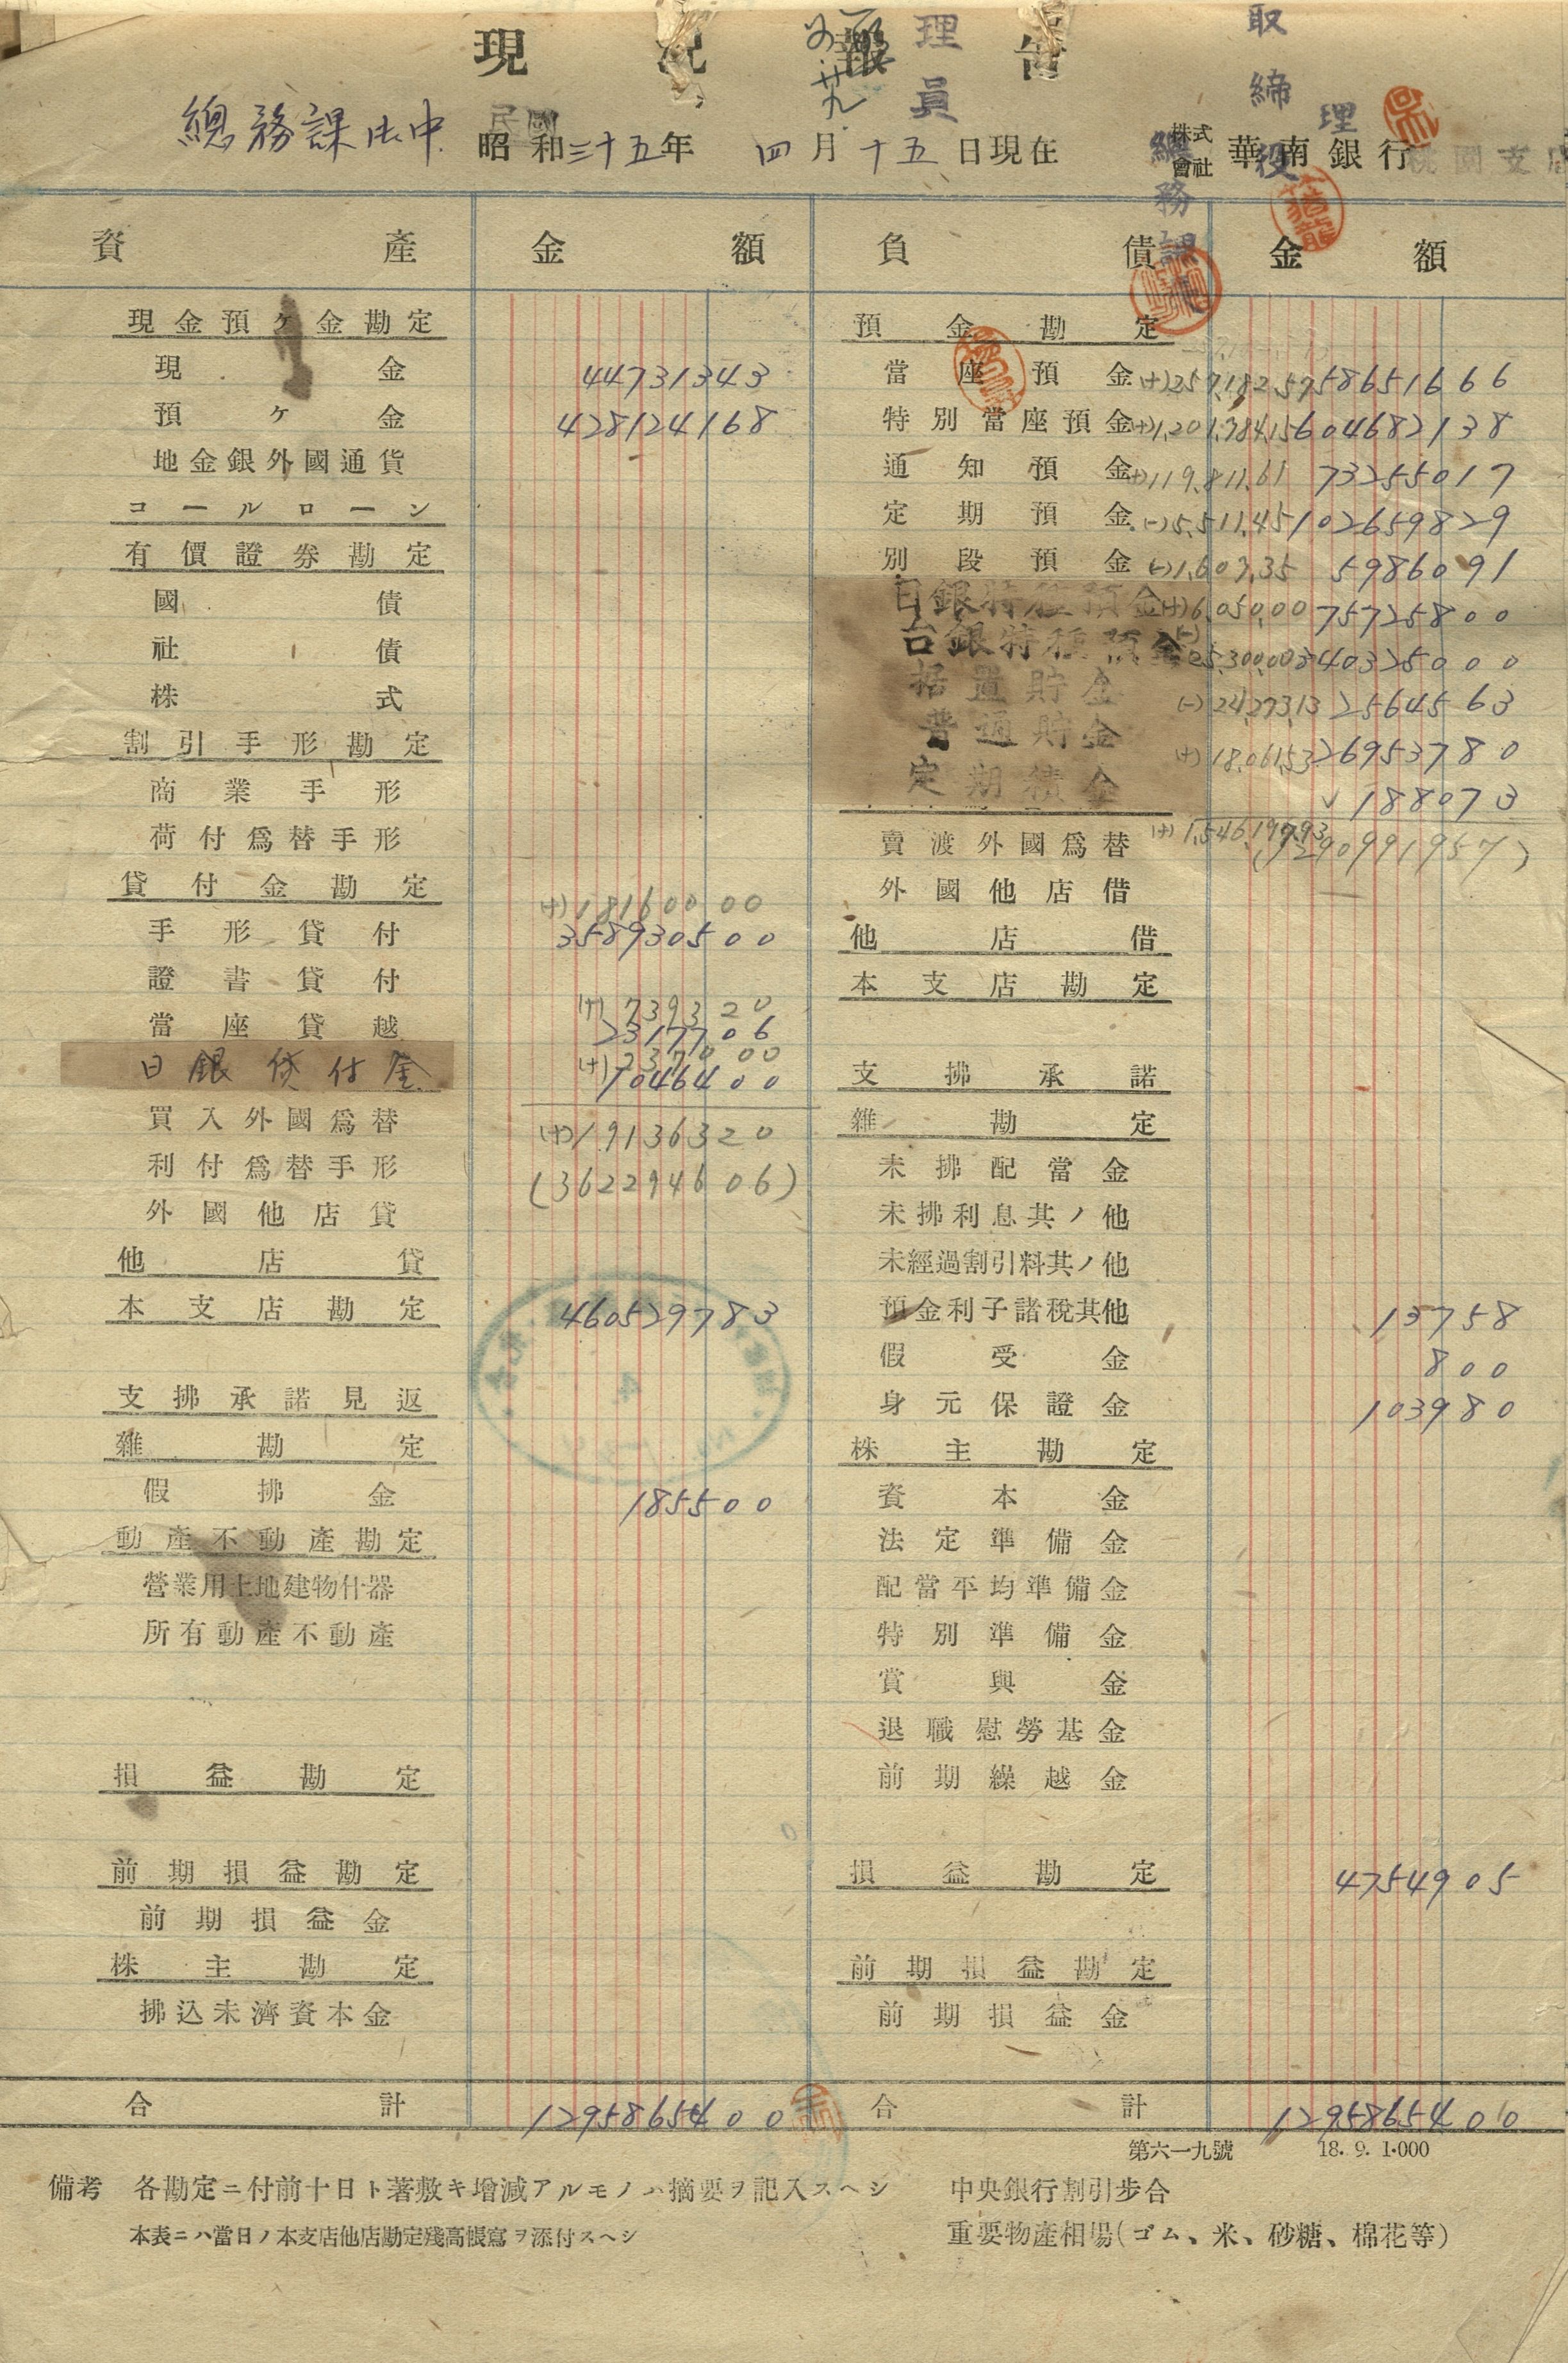 現況報告
理員
取締役
理
總務課御中
民國
昭和三十五年 四月十五日現在
株式會社 華南銀行 桃園支店
總務課
資產 金額 負債 金額
現金預ヶ金勘定
現金 44731343
預ヶ金 428124168
地金銀外國通貨
コールローン
有價證券勘定
國債
社債
株式
割引手形勘定
商業手形
荷付爲替手形
貸付金勘定
(+)181600 00
手形貸付 358930500
證書貸付
(+)7393 20
當座貸越 2317706
(+)2370 00
日銀貸付金 1046400
買入外國爲替 (+)19136320
利付爲替手形 (362294606)
外國他店貸
他店貸
本支店勘定 460529783
支拂承諾見返
雜勘定
假拂金 185500
動產不動產勘定
營業用土地建物什器
所有動產不動產
損益勘定
前期損益勘定
前期損益金
株主勘定
拂込未濟資本金
合計 1295865400
預金勘定
當座預金 (+)257,182.57 58651666
特別當座預金 (+)1,201,784.15 604682138
通知預金 (+)119,811.61 73255017
定期預金 (-)5,511.45 102659829
別段預金 (-)1,607.35 5986091
日銀特種預金 (+)6,050.00 75725800
台銀特種預金 (-)25,300.00 340325000
据置貯金 (-)24,273.13 25645 63
普通貯金 (+)18,061.53 26953780
定期積金 188073
賣渡外國爲替 (+)1,546,197.93 (1290991957)
外國他店借
他店借
本支店勘定
支拂承諾
雜勘定
未拂配當金
未拂利息其ノ他
未經過割引料其ノ他
預金利子諸稅其他 13758
假受金 800
身元保證金 103980
株主勘定
資本金
法定準備金
配當平均準備金
特別準備金
賞與金
退職慰勞基金
前期繰越金
損益勘定 4754905
前期損益勘定
前期損益金
合計 1295865400
第六一九號 18.9.1·000
備考 各勘定ニ付前十日ト著敷キ增減アルモノハ摘要ヲ記入スヘシ
本表ニハ當日ノ本支店他店勘定殘高帳寫ヲ添付スヘシ
中央銀行割引步合
重要物產相場(ゴム、米、砂糖、棉花等)